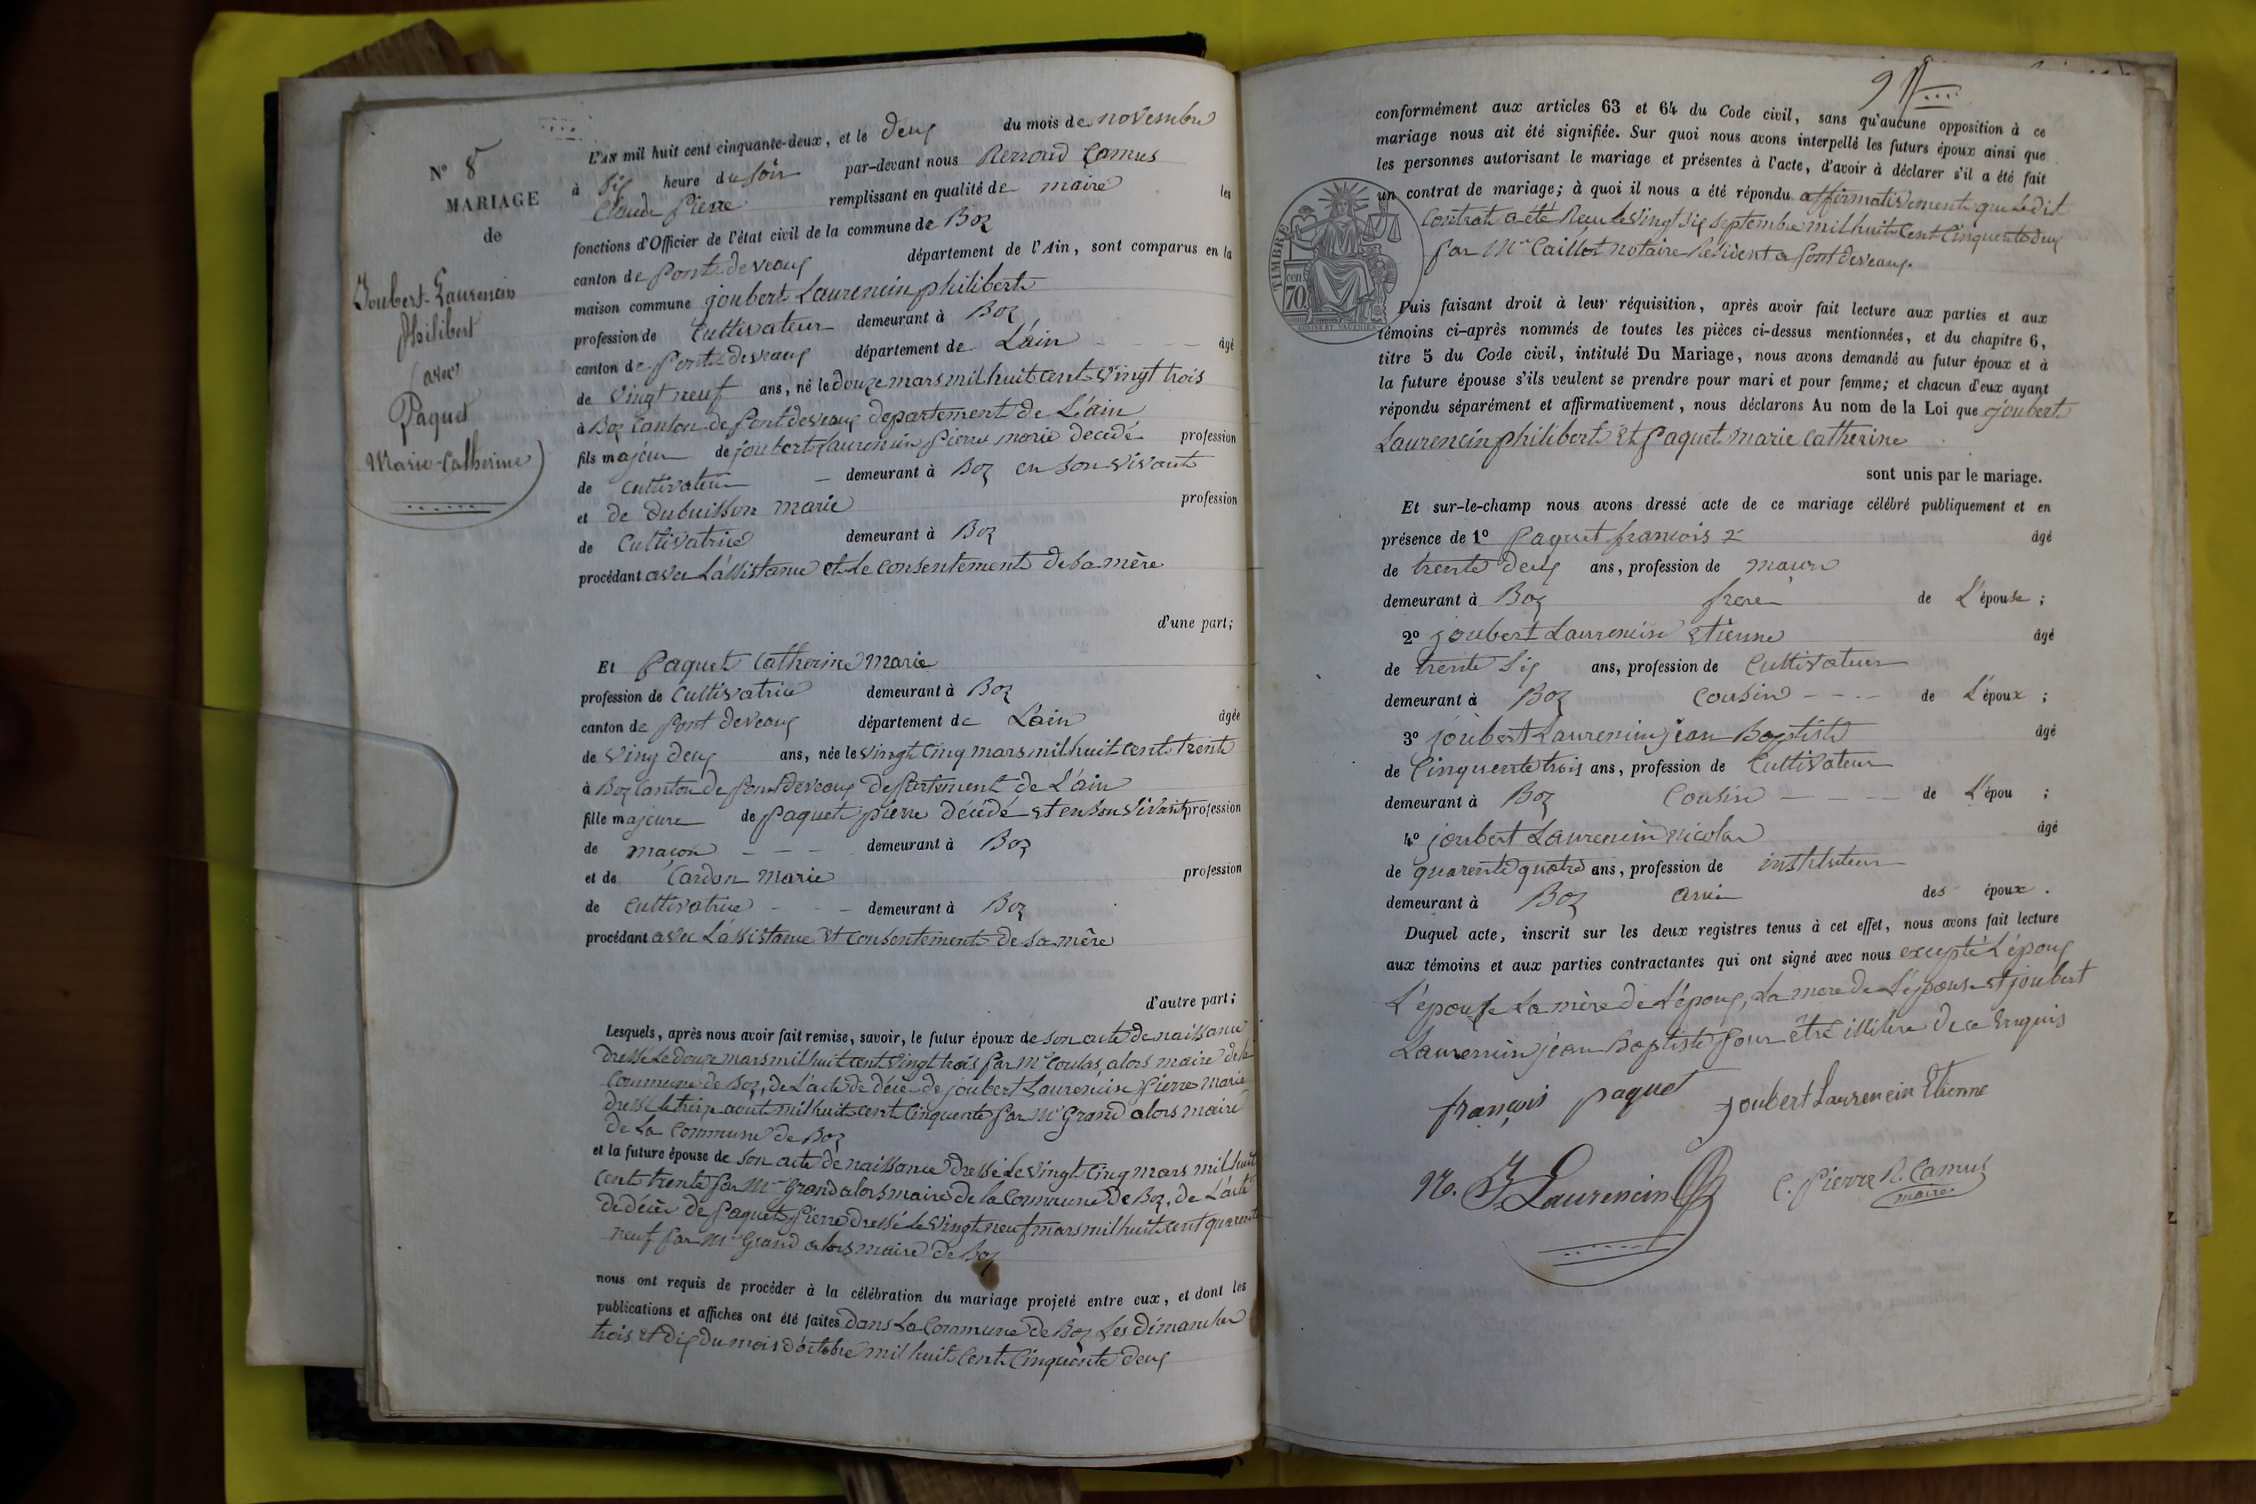 N° 8
MARIAGE
de
Joubert-Laurencin
Philibert
avec
Paquet
Marie-Catherine
L'AN mil huit cent cinquante-deux, et le deux du mois de novembre
à six heure du soir par-devant nous Renoud Camus
Claude Pierre remplissant en qualité de maire les
fonctions d'Officier de l'état civil de la commune de Boz
canton de Pont deveaux département de l'Ain, sont comparus en la
maison commune joubert Laurencin philibert
profession de Cultivateur demeurant à Boz
canton de Pont deveaux département de L'ain âgé
de Vingt neuf ans, né le douze mars mil huit cent vingt trois
à Boz Canton de Pont deveaux departement de L'ain
fils majeur de joubert Laurencin pierre marie decedé profession
de cultivateur demeurant à Boz en son vivant
et de dubuisson marie profession
de Cultivatrice demeurant à Boz
procédant avec L'assistance et Le consentement de sa mère
d'une part;
Et Paquet Catherine Marie
profession de Cultivatrice demeurant à Boz
canton de Pont deveaux département de L'ain âgée
de Ving deux ans, née le vingt cinq mars mil huit cent trente
à Boz Canton de Pont deveaux departement de L'ain
fille majeure de Paquet pierre décédé et en son vivant profession
de maçon demeurant à Boz
et de Cardon Marie profession
de Cultivatrice demeurant à Boz
procédant avec L'assistance et consentement de sa mère
d'autre part;
Lesquels, après nous avoir fait remise, savoir, le futur époux de son acte de naissance
dressé Le douze mars mil huit cent vingt trois par Mr Coulas, alors maire de la
Commune de Boz, de L'acte de décès de joubert Laurencin Pierre Marie
dressé le treize août mil huit cent cinquante par Mr Grand alors maire
de La Commune de Boz
et la future épouse de son acte de naissance dressé Le vingt cinq mars mil huit
cent trente par Mr Grand alors maire de la Commune de Boz, de L'acte
de décès de Paquet Pierre dressé Le vingt neuf mars mil huit cent quarente
neuf par Mr Grand alors maire de Boz
nous ont requis de procéder à la célébration du mariage projeté entre eux, et dont les
publications et affiches ont été faites dans La Commune de Boz Les dimanches
trois et dix du mois d'octobre mil huit cent cinquante deux
9
conformément aux articles 63 et 64 du Code civil, sans qu'aucune opposition à ce
mariage nous ait été signifiée. Sur quoi nous avons interpellé les futurs époux ainsi que
les personnes autorisant le mariage et présentes à l'acte, d'avoir à déclarer s'il a été fait
un contrat de mariage; à quoi il nous a été répondu affirmativement que Ledit
Contrat a été Reçu Le vingt six septembre mil huit cent cinquante deux
par Me Caillot notaire Resident a pont deveaux.
TIMBRE
cen
70
Puis faisant droit à leur réquisition, après avoir fait lecture aux parties et aux
témoins ci-après nommés de toutes les pièces ci-dessus mentionnées, et du chapitre 6,
titre 5 du Code civil, intitulé Du Mariage, nous avons demandé au futur époux et à
la future épouse s'ils veulent se prendre pour mari et pour femme; et chacun d'eux ayant
répondu séparément et affirmativement, nous déclarons Au nom de la Loi que joubert
Laurencin philibert Et Paquet marie Catherine
sont unis par le mariage.
Et sur-le-champ nous avons dressé acte de ce mariage célébré publiquement et en
présence de 1° Paquet francois âgé
de trente deux ans, profession de maçon
demeurant à Boz frere de L'épouse;
2° joubert Laurencin Etienne âgé
de trente Six ans, profession de Cultivateur
demeurant à Boz Cousin de L'époux;
3° joubert Laurencin jean Baptiste âgé
de Cinquente trois ans, profession de Cultivateur
demeurant à Boz Cousin de L'épou;
4° joubert Laurencin nicolas âgé
de quarente quatre ans, profession de instituteur
demeurant à Boz ami des époux.
Duquel acte, inscrit sur les deux registres tenus à cet effet, nous avons fait lecture
aux témoins et aux parties contractantes qui ont signé avec nous excepté L'époux
L'épouse La mère de L'époux, La mere de L'épouse et joubert
Laurencin jean Baptiste pour être illitere de ce Enquis
françois paquet joubert Laurencin Etienne
No. J. Laurencin C. Pierre R. Camus
maire.